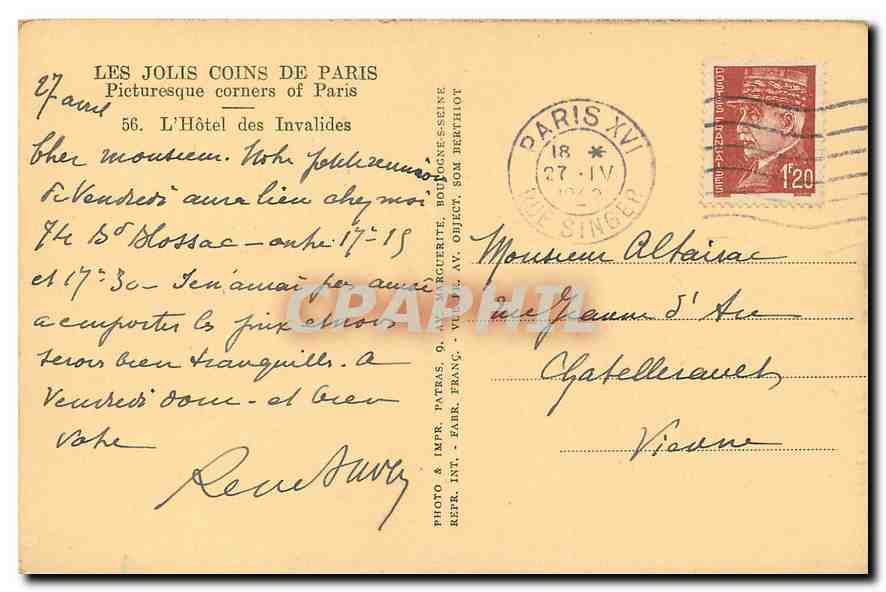 LES JOLIS COINS DE PARIS
Picturesque corners of Paris
56. L'Hôtel des Invalides
27 avril
Cher monsieur. Notre petite réunion
de Vendredi aura lieu chez moi
74 Bd Blossac - entre 17h 15
et 17h 30 - Je n'aurai pas ainsi
a emporter les prix et nous
serons bien tranquilles. A
Vendredi donc - et bien
votre
René
PHOTO & IMPR. PATRAS, 9, AV. MARGUERITE, BOULOGNE-S-SEINE
REPR. INT. - FABR. FRANÇ. - VUE DR. AV. OBJECT. SOM BERTHIOT
PARIS XVI
18 *
27 -IV
RUE SINGER
POSTES FRANÇAISES
1F20
Monsieur Altairac
rue Jeanne d'Arc
Chatellerault
Vienne
CPAPHIL